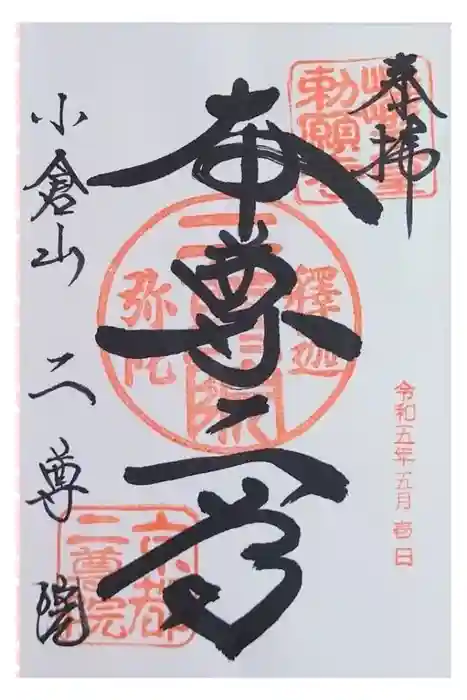 奉拝
嵯峨皇
勅願寺
本尊二尊
釋迦
弥陀
令和五年五月壱日
小倉山 二尊院
京都
二尊院